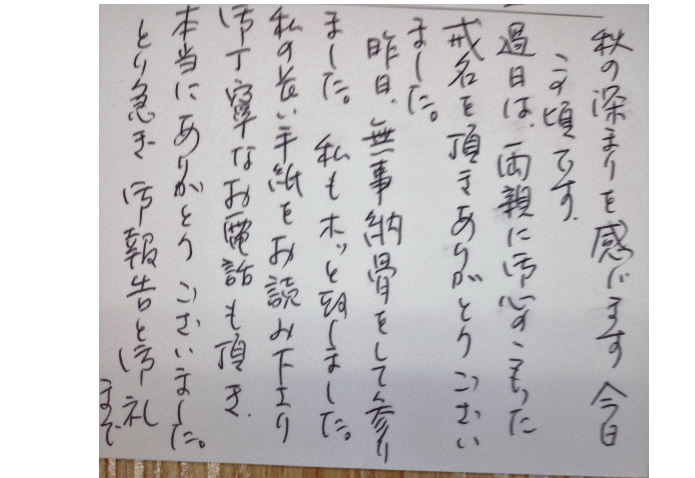 秋の深まりを感じます今日
この頃です。
過日は、両親に御心のこもった
戒名を頂きありがとうござい
ました。
昨日、無事納骨をして参り
ました。私もホッと致しました。
私の長い手紙をお読み下さり
御丁寧なお電話も頂き、
本当にありがとうございました。
とり急ぎ御報告と御礼
まで